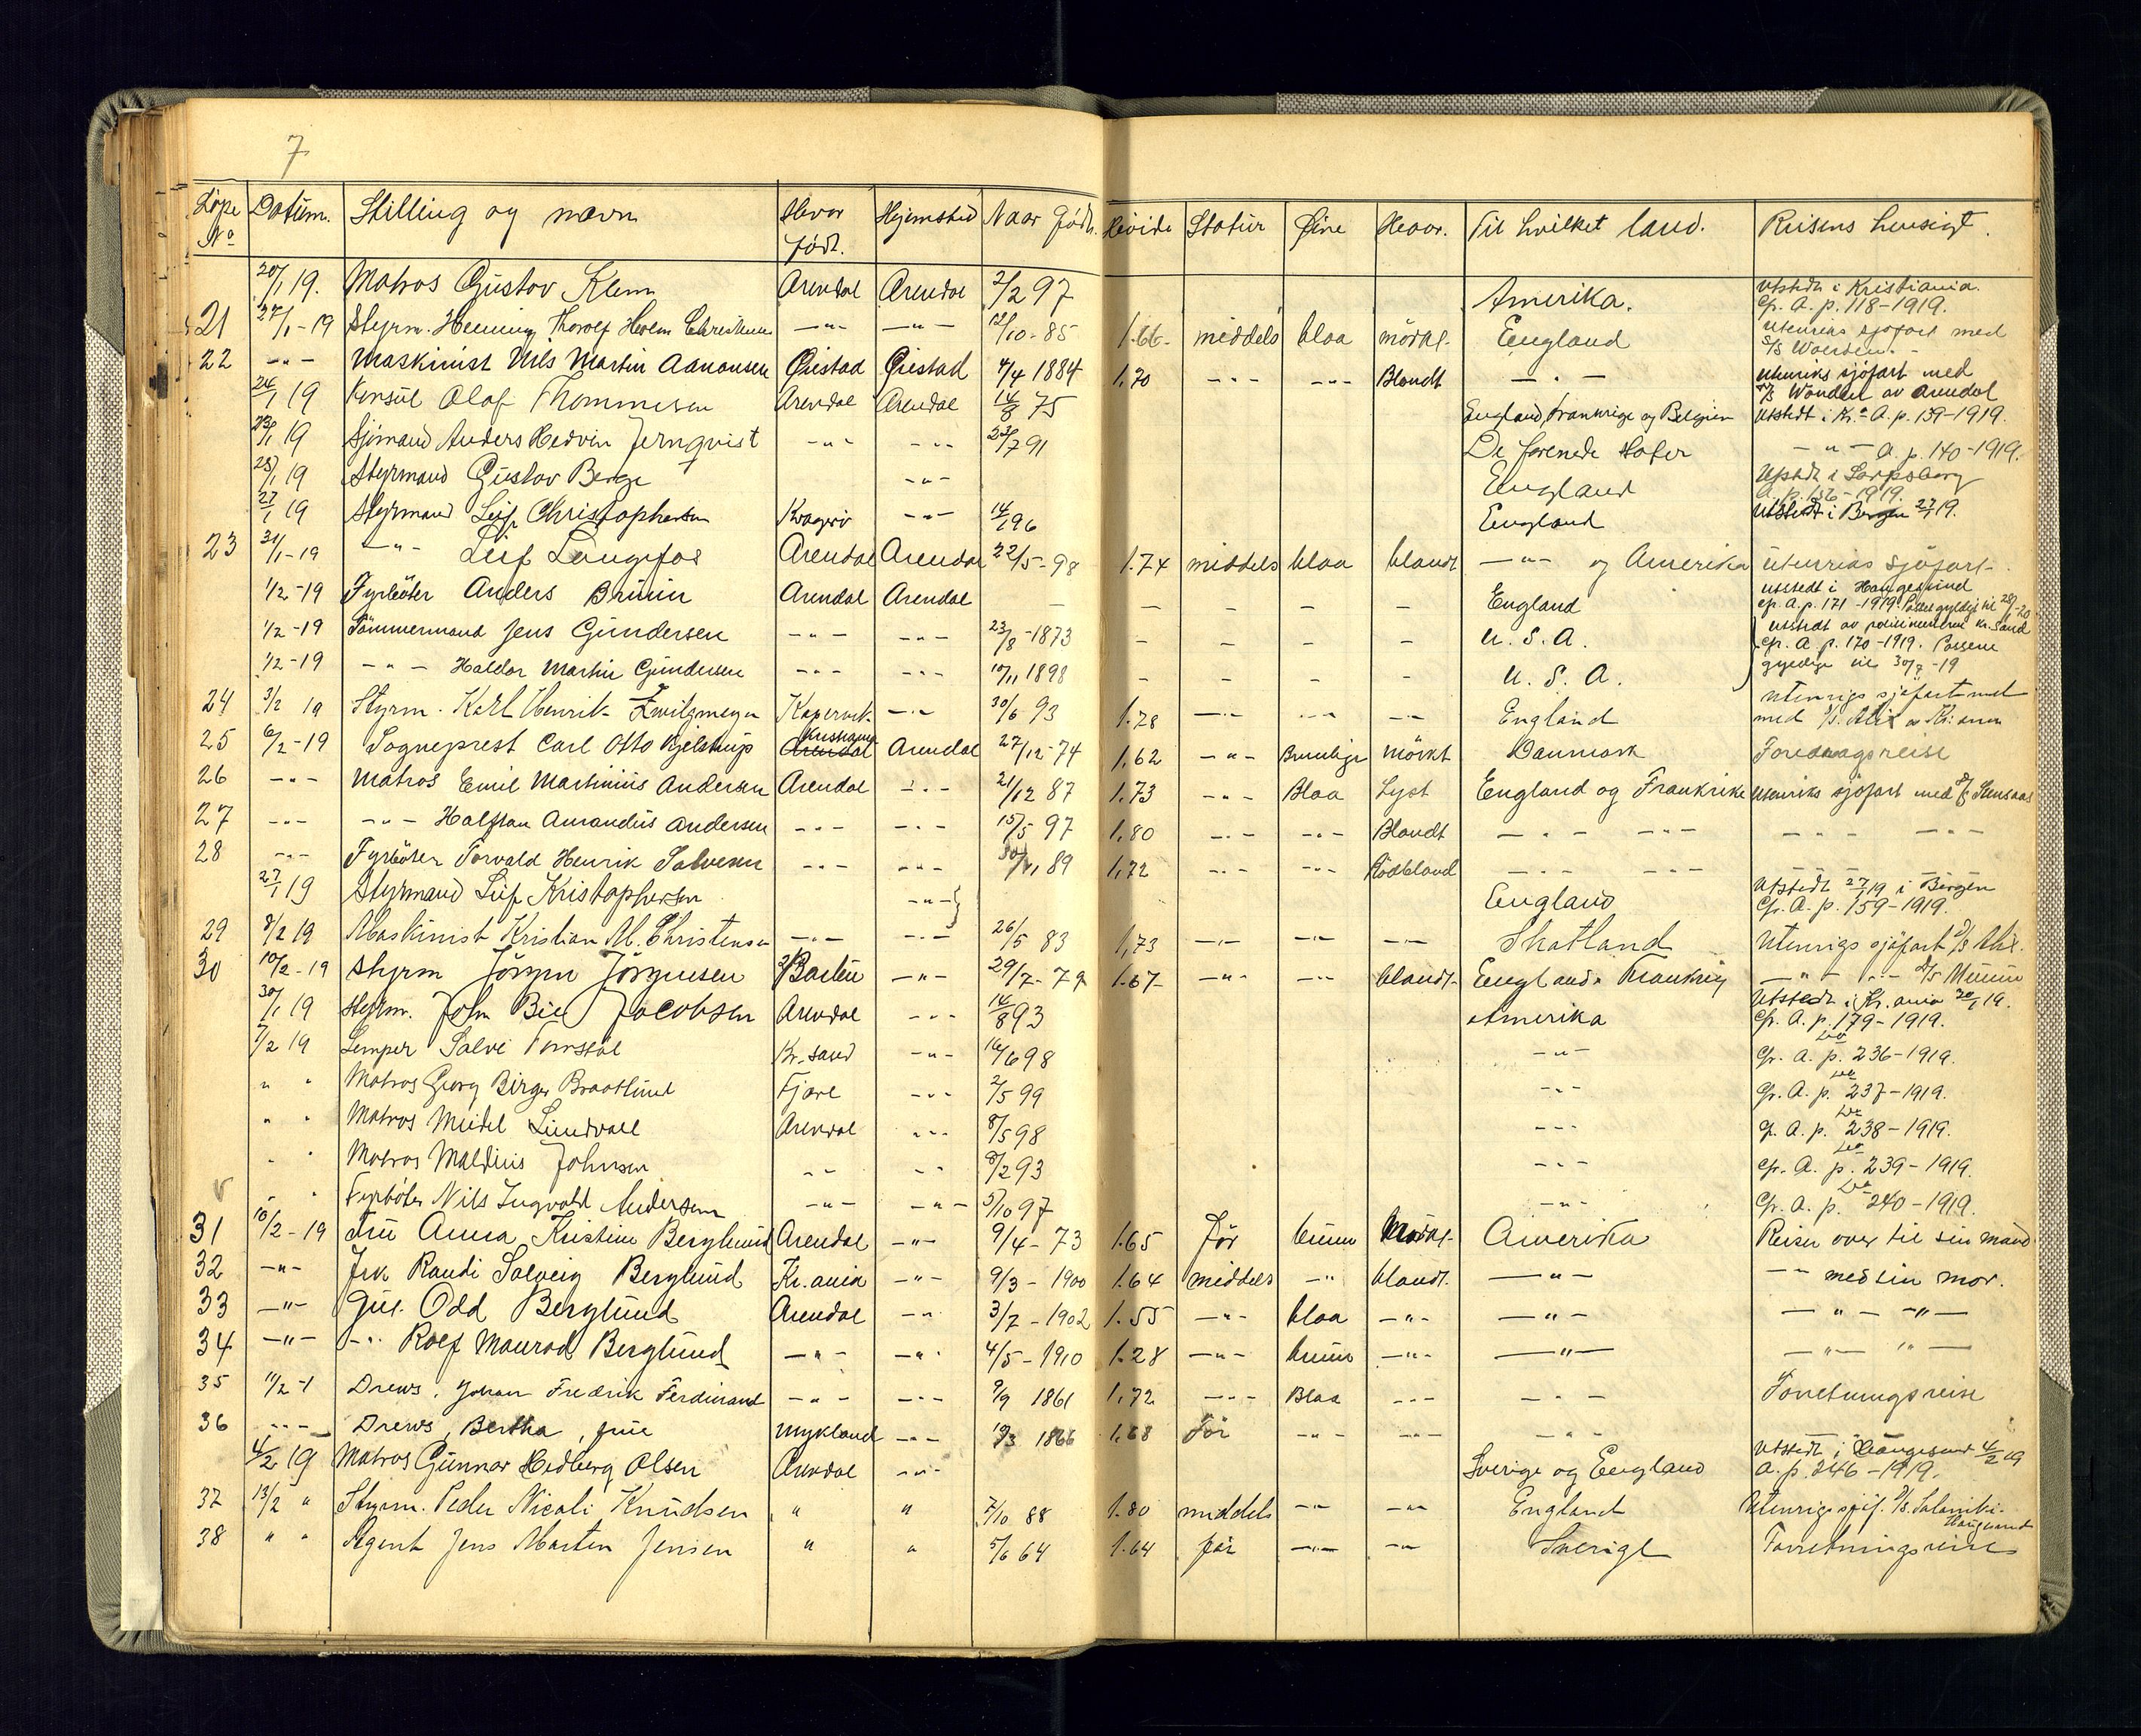 7
Løpe No Datum. Stilling og navn Hvor født. Hjemsted Naar født. Høide Statur Øine Haar. Til hvilket land. Reisens hensigt.
20/1 19. Matros Gustav Klem Arendal Arendal 2/2 97 Amerika. Utstedt i Kristiania. Cfr. A. p. 118-1919.
21 27/1-19 Styrm. Henning Thorolf 12/10-85 1.66- middels blaa mörkt- England Utenriks sjøfart med S/S
22 -"- Maskinist Nils Martin Aanonsen Øiestad Øiestad 4/4 1884 1,70 -"- -"- Blondt -"- Utenriks sjöfart med S/S av Arendal
24/1 19 Konsul Olaf Thommesen Arendal Arendal 14/8 75 England Frankrige og Belgien Utstedt i Kr.a A. p. 139-1919.
23/1 19 Sjömand Anders Hedvin Jernqvist -"- -"- 23/7 91 De forenede Stater -"- A. p. 140-1919.
25/1 19 Styrmand Gustav Berge -"- England Utstedt i Sarpsborg A. p. 156-1919.
27/1 19 Styrmand Leif Christophersen Kragerö -"- 14/1 96 England Utstedt i Bergen 27/1 19.
23 31/1-19 -"- Leif Langfos Arendal Arendal 22/5-98 1.74 middels blaa blondt -"- og Amerika utenriks sjöfart-
1/2-19 Fyrböter Anders Bruun Arendal Arendal - - - - - England utstedt i Haugesund cfr. A. p. 171-1919.
1/2-19 Tömmermand Jens Gundersen -"- -"- 23/8-1873 - - - - U. S. A. utstedt av politimesteren Kr.sand cfr. A. p. 170-1919. Passene
1/2-19 -"- Haldor Martin Gundersen -"- -"- 10/11 1898 - - - - U. S. A. gyldige til 30/7-19
24 3/2 19 Styrm. Karl Henrik Zwilgmeyer -"- 30/6 93 1.78 -"- -"- -"- England Utenrigs sjøfart med med S/S. Alix av Kr:ania
25 6/2-19 Sogneprest Carl Otto Kjelstrup Arendal Kristiania Arendal 27/12-74 1,62 -"- Brunlige mörkt Danmark Foredragsreise
26 -"- Matros Emil Martinius Andersen Arendal -"- 21/12 87 1.73 -"- Blaa Lyst England og Frankrike Utenriks sjöfart med S/S Stensaas
27 -"- -"- Halfdan Amandus Andersen -"- -"- 15/5 97 1,80 -"- -"- Blondt -"- -"- -"- -"-
28 -"- Fyrböter Torvald Henrik Salvesen -"- -"- 30/11 89 1,72 -"- -"- Rödblond -"- -"- -"- -"-
27/1 19 Styrmand Leif Kristophersen -"- England Utstedt 27/1 19 i Bergen Cfr. A. p. 159-1919.
29 8/2 19 Maskinist Kristian M. Christensen -"- -"- 26/5 83 1,73 -"- -"- -"- Skotland Utenrigs sjøfart S/S Alix.
30 10/2-19 Styrm Jörgen Jörgensen -"- 29/7-79 1.67- -"- -"- blondt- England & Frankrig -"- -"- S/S
30/1 19 Styrm. John Jacobsen Arendal -"- 14/8 93 Amerika Utstedt i Kr.ania 30/1 19. Cfr. A. p. 179-1919.
7/2 19 Lemper Salve Kr.sand -"- 16/6 98 -"- Cfr. A. p. 236-1919.
" " Matros Georg Birger Braatlund Fjære -"- 2/5 99 -"- Cfr. A. p. 237-1919.
" " Matros Meidel Lundvall Arendal -"- 8/5 98 -"- Cfr. A. p. 238-1919.
" " Matros Maldius Johnsen -"- -"- 8/2 93 -"- Cfr. A. p. 239-1919.
" " Fyrböter Nils Ingvald Andersen -"- -"- 5/10 97 -"- Cfr. A. p. 240-1919.
31 10/2-19 Fru Anna Kristine Berglund Arendal -"- 9/4-73 1.65 För brune Mörkt- Amerika Reiser over til sin mand
32 -"- Frk Randi Solveig Berglund Kr.ania -"- 9/3-1900 1.64 middels -"- blondt. -"- -"- med sin mor.
33 -"- Gut. Odd Berglund Arendal -"- 3/7-1902 1.55 -"- blaa -"- -"- -"- -"-
34 -"- -"- Rolf Monrad Berglund -"- -"- 4/5-1910 1.28 -"- brune -"- -"- -"- "-
35 11/2-1 Drews, Johan Fredrik Ferdinand -"- -"- 9/9 1861 1,72 -"- Blaa -"- -"- Forretningsreise
36 -"- Drews, Bertha, frue Mykland -"- 19/3 1866 1,68 För -"- -"- -"-
4/2 19 Matros Gunnar Hedberg Olsen Arendal -"- Sverige og England Utstedt i Haugesund 4/2 19 A. p. 246-1919.
37 13/2 " Styrm. Peder Nicolai Knudsen " " 7/10 88 1.80 middels -"- -"- England Utenrigs sjöf. S/S. Haugesund
38 " " Agent Jens Martin Jensen " " 5/6 64 1.64 för -"- -"- Sverige Forretningsreise